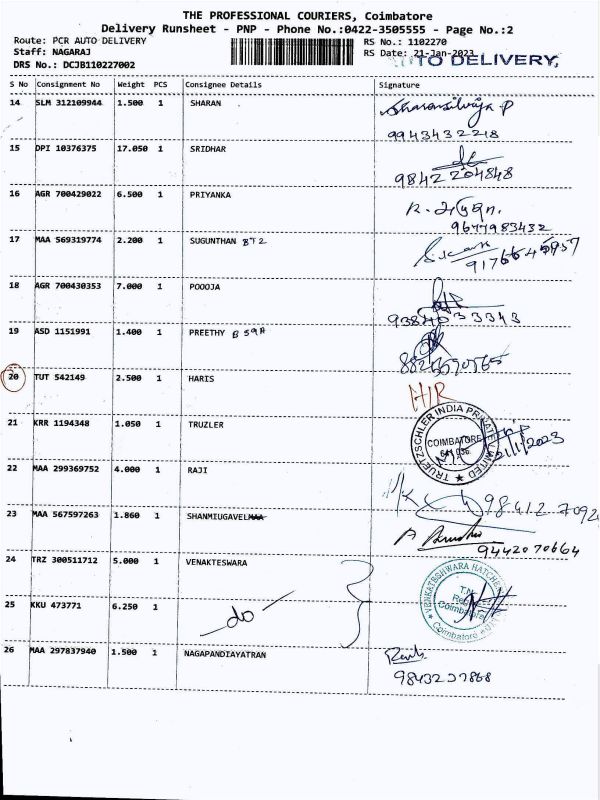 THE PROFESSIONAL COURIERS, Coimbatore
Delivery Runsheet - PNP - Phone No.:0422-3505555 - Page No.:2
Route: PCR AUTO DELIVERY RS No.: 1102270
Staff: NAGARAJ RS Date: 21-Jan-2023 TO DELIVERY,
DRS No.: DCJB110227002
S No Consignment No Weight PCS Consignee Details Signature
14 SLM 312109944 1.500 1 SHARAN
9943432218
15 DPI 10376375 17.050 1 SRIDHAR
9842204848
16 AGR 700429022 6.500 1 PRIYANKA
9677983432
17 MAA 569319774 2.200 1 SUGUNTHAN B72
18 AGR 700430353 7.000 1 POOOJA
19 ASD 1151991 1.400 1 PREETHY B 59A
20 TUT 542149 2.500 1 HARIS
H/R
21 KRR 1194348 1.050 1 TRUZLER
TRUETZSCHLER INDIA PRIVATE LIMITED
COIMBATORE
21/1/2023
22 MAA 299369752 4.000 1 RAJI
23 MAA 567597263 1.860 1 SHANMIUGAVEL
9442070664
24 TRZ 300511712 5.000 1 VENAKTESWARA
VENKATESHWARA HATCHERIES
Coimbatore
25 KKU 473771 6.250 1
-do-
26 MAA 297837940 1.500 1 NAGAPANDIAYATRAN
9843237868